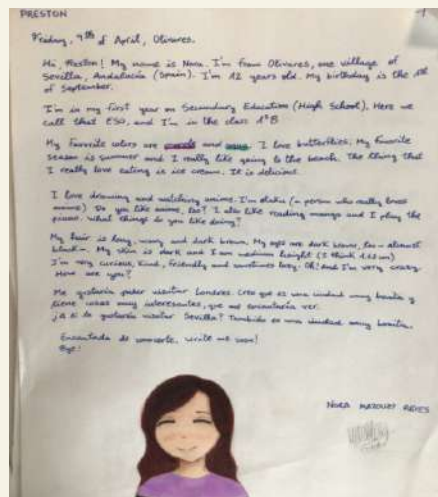 PRESTON
Friday, 9th of April, Olivares.
Hi, Preston! My name is Nora. I'm from Olivares, one village of
Sevilla, Andalucía (Spain). I'm 12 years old. My birthday is the
of September.
I'm in my first year on Secundary Education (High School). Here we
call that ESO, and I'm in the class 1ºB
My favorite colors are purple and aqua. I love butterflies. My favorite
season is summer and I really like going to the beach. The thing that
I really love eating is ice cream. It is delicious.
I love drawing and watching anime. I'm otaku (a person who really loves
anime) Do you like anime, too? I also like reading manga and I play the
piano. What things do you like doing?
My hair is long, wavy and dark brown. My eyes are dark brown, too - almost
black. My skin is dark and I am medium height (I think cm)
I'm very curious, kind, friendly and sometimes lazy. Oh! and I'm very crazy.
How are you?
Me gustaría poder visitar Londres. Creo que es una ciudad muy bonita y
tiene cosas muy interesantes, que me encantaría ver.
¿A ti te gustaría visitar Sevilla? También es una ciudad muy bonita.
Encantada de conocerte, write me soon!
Bye!
NORA REYES